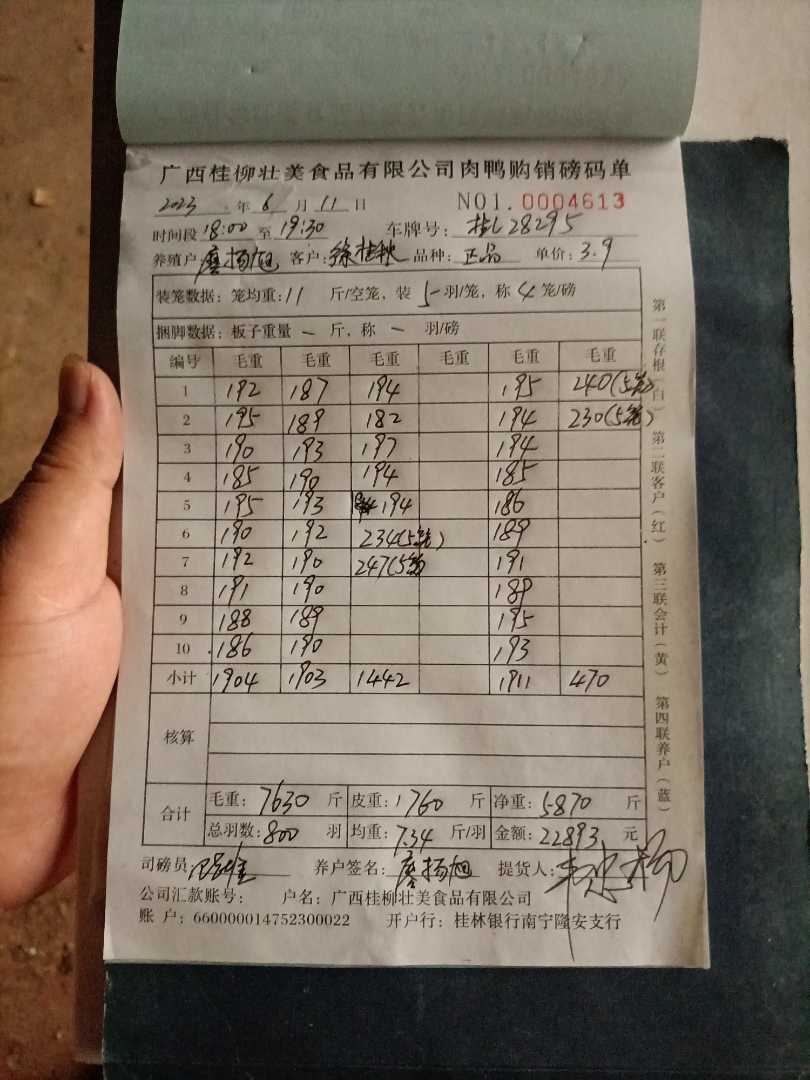 广西桂柳壮美食品有限公司肉鸭购销磅码单
2023 年 6 月 11 日 NO1. 0004613
时间段 18:00 至 19:30 车牌号: 桂L28295
养殖户 廖扬旭 客户: 徐桂秧 品种: 正品 单价: 3.9
装笼数据: 笼均重: 11 斤/空笼, 装 5 羽/笼, 称 4 笼/磅
捆脚数据: 板子重量 — 斤, 称 — 羽/磅
编号 毛重 毛重 毛重 毛重 毛重 毛重
1 192 187 194 195 240(5笼)
2 195 189 182 194 230(5笼)
3 190 193 197 194
4 185 190 194 185
5 195 193 194 186
6 190 192 234(5笼) 189
7 192 190 247(5笼 191
8 191 190 189
9 188 189 195
10 186 190 193
小计 1904 1903 1442 1911 470
核算
合计
毛重: 7630 斤 皮重: 1760 斤 净重: 5870 斤
总羽数: 800 羽 均重: 7.34 斤/羽 金额: 22893 元
司磅员 养户签名: 廖扬旭 提货人:
公司汇款账号: 户名: 广西桂柳壮美食品有限公司
账 户: 660000014752300022 开户行: 桂林银行南宁隆安支行
第一联存根(白) 第二联客户(红) 第三联会计(黄) 第四联养户(蓝)